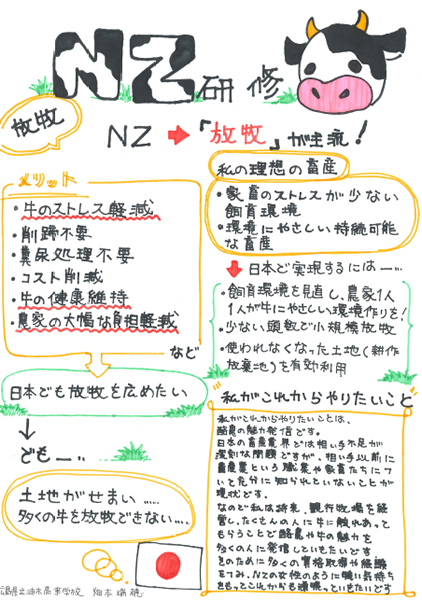 NZ研修
放牧
NZ ➡ 「放牧」が主流！
メリット
・牛のストレス軽減
・削蹄不要
・糞尿処理不要
・コスト削減
・牛の健康維持
・農家の大幅な負担軽減
など
日本でも放牧を広めたい
↓
でも…
土地がせまい……
多くの牛を放牧できない……
私の理想の畜産
・家畜のストレスが少ない
飼育環境
・環境にやさしい持続可能
な畜産
日本で実現するには…
・飼育環境を見直し、農家1人
1人が牛にやさしい環境作りを！
・少ない頭数で小規模放牧
・使われなくなった土地（耕作
放棄地）を有効利用
私がこれからやりたいこと
私がこれからやりたいことは、
酪農の魅力発信です。
日本の畜産業界では担い手不足が
深刻な問題ですが、担い手以前に
畜産業という職業や家畜たちにつ
いて充分に知られていないことが
現状です。
なので私は将来、観光牧場を経
営し、たくさんの人に牛に触れあって
もらうことで酪農や牛の魅力を
多くの人に発信していきたいです
そのために多くの資格取得や経験
をつみ、NZの女性のように強い気持ち
をもってこれからも頑張っていきたいです
高等学校